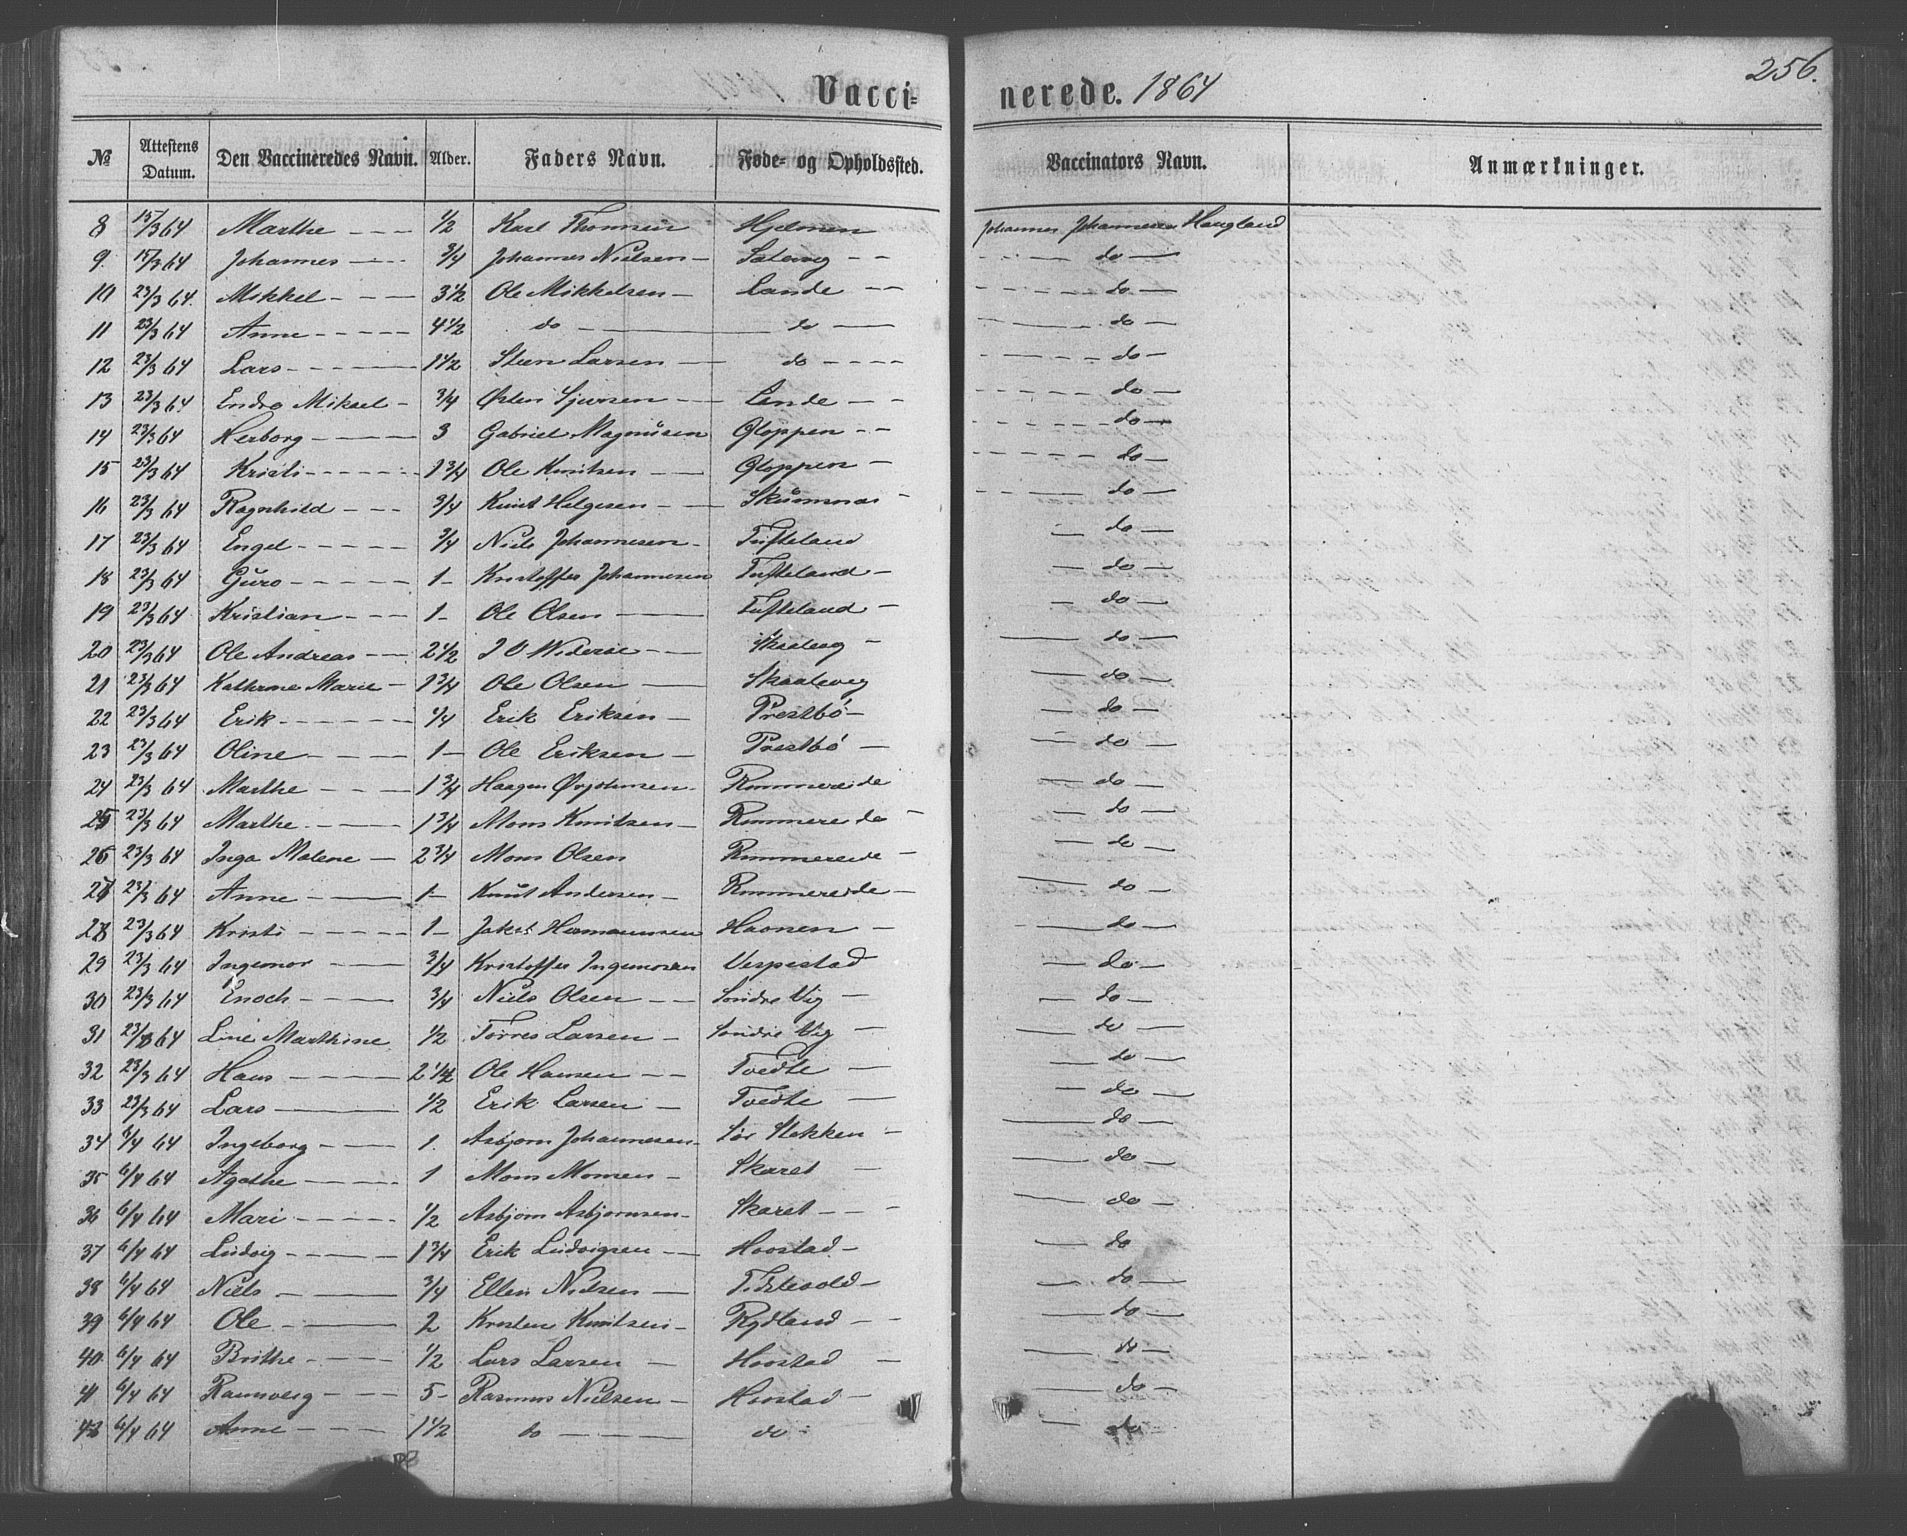 256.
Vacci= nerede. 1864
№ Attestens Datum. Den Vaccineredes Navn. Alder. Faders Navn. Føde= og Opholdssted. Vaccinators Navn. Anmærkninger.
8 15/3 64 Marthe — 1/2 Karl Thomsen Hjelmen Johannes Johannesen Haugland
9. 15/3 64 Johannes — 3/4 Johannes Nielsen — — do —
10 23/3 64 Mikkel — 3 1/2 Ole Mikkelsen — Lande — — do —
11 23/3 64 Anne — 4 1/2 do — do — — do —
12 23/3 64 Lars — 1 1/2 Steen Larsen — do — — do —
13 23/3 64 Endre Mikael — 3/4 Østen Sjursen — Lande — — do —
14 23/3 64 Herborg — 3 Gabriel Magnüsen Gloppen — — do —
15 23/3 64 Kristi — 1 3/4 Ole Knutsen — Gloppen — — do —
16 23/3 64 Ragnhild — 3/4 Knut Helgesen — Skümsnæs — — do —
17 23/3 64 Engel — 3/4 Niels Johannesen — Tufteland — do —
18 23/3 64 Guro — 1 — Kristoffer Johannesen Tufteland — — do —
19 23/3 64 Kristian — 1 — Ole Olsen — Tufteland — — do —
20 23/3 64 Ole Andreas — 2 1/2 J O Widerøe — Skaalevig — — do —
21 23/3 64 Kathrine Marie — 1 3/4 Ole Olsen — Skaalevig — do —
22 23/3 64 Erik — 1/4 Erik Eriksen — Prestbö — — do —
23 23/3 64 Oline — 1 — Ole Eriksen — Prestbö — — do —
24 23/3 64 Marthe — 1 3/4 Haagen — Rommereide — do —
25 23/3 64 Marthe — 1 3/4 Mons Knutsen — Rommereide — — do —
26 23/3 64 Inga Malene — 2 3/4 Mons Olsen Rommerede — — do —
27 23/3 64 Anne — 1 — Knut Andersen — Rommereide — — do —
28 23/3 64 Kristi — 1 — Jakob Hermannsen Haanen — — do —
29 23/3 64 Ingemor — 3/4 Kristoffer Ingemorsen Vespestad — do —
30 23/3 64 Enoch — 3/4 Niels Olsen — Söndre Vig — — do —
31 23/3 64 Line Marthine 1/2 Torres Larsen — Söndre Vig — — do —
32 23/3 64 Hans — 2 1/2 Ole Hansen — Tvedte — — do —
33 23/3 64 Lars — 1/2 Erik Larsen — Tvedte — — do —
34 6/4 64 Ingeborg — 1. Asbjørn Johannesen — Sør Stokken — — do —
35 6/4 64 Agathe — 1 Mons Monsen — Skaret — — do —
36 6/4 64 Mari — 1/2 Asbjørn Asbjørnsen — Skaret — — do —
37 6/4 64 Ludvig — 1 3/4 Erik Ludvigsen — Hovstad — — do
38 6/4 64 Niels — 3/4 Ellen Nielsen — — do —
39 6/4 64 Ole — 2 Kristen Knutsen — Rydland — — do —
40 6/4 64 Brithe — 1/2 Lars Larsen — Hovstad — — do —
41 6/4 64 Ramsveig — 5 — Rasmus Nielsen — Hovstad — — do —
42 6/4 64 Anne — 1 1/2 do — do — — do —